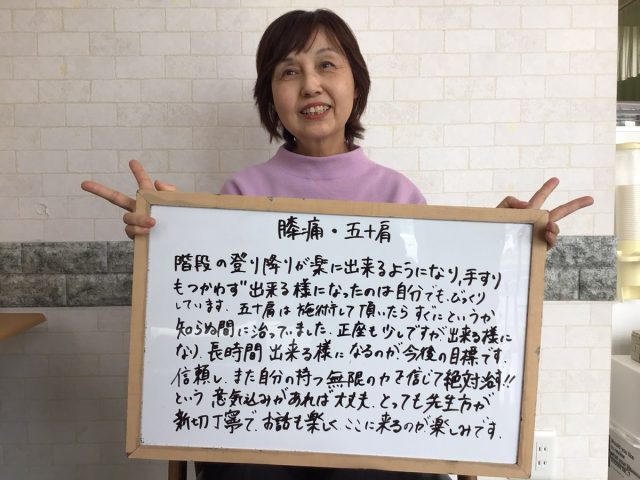 膝痛・五十肩
階段の登り降りが楽に出来るようになり,手すり
もつかわず出来る様になったのは自分でも、びっくり
しています。五十肩は施術して頂いたらすぐにというか
知らぬ間に治っていました。正座も少しですが、出来る様に
なり、長時間出来る様になるのが今後の目標です。
信頼し、また自分の持つ無限の力を信じて絶対治る!!
という意気込みがあれば大丈夫。とっても先生方が
親切丁寧で、お話も楽しく、ここに来るのが楽しみです。